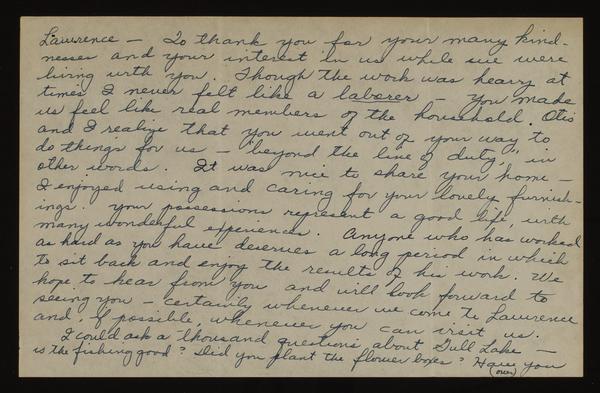 Lawrence — To thank you for your many kind-
nesses and your interest in us while we were
living with you. Though the work was heavy at
times I never felt like a laborer — you made
us feel like real members of the household. Otis
and I realize that you went out of your way to
do things for us — "beyond the line of duty," in
other words. It was nice to share your home —
I enjoyed using and caring for your lovely furnish-
ings. Your possessions represent a good life, with
many wonderful experiences. Anyone who has worked
as hard as you have deserves a long period in which
to sit back and enjoy the results of his work. We
hope to hear from you and will look forward to
seeing you — certainly whenever we come to Lawrence
and, if possible, whenever you can visit us.
I could ask a thousand questions about Gull Lake —
is the fishing good? Did you plant the flower boxes? Have you
(over)